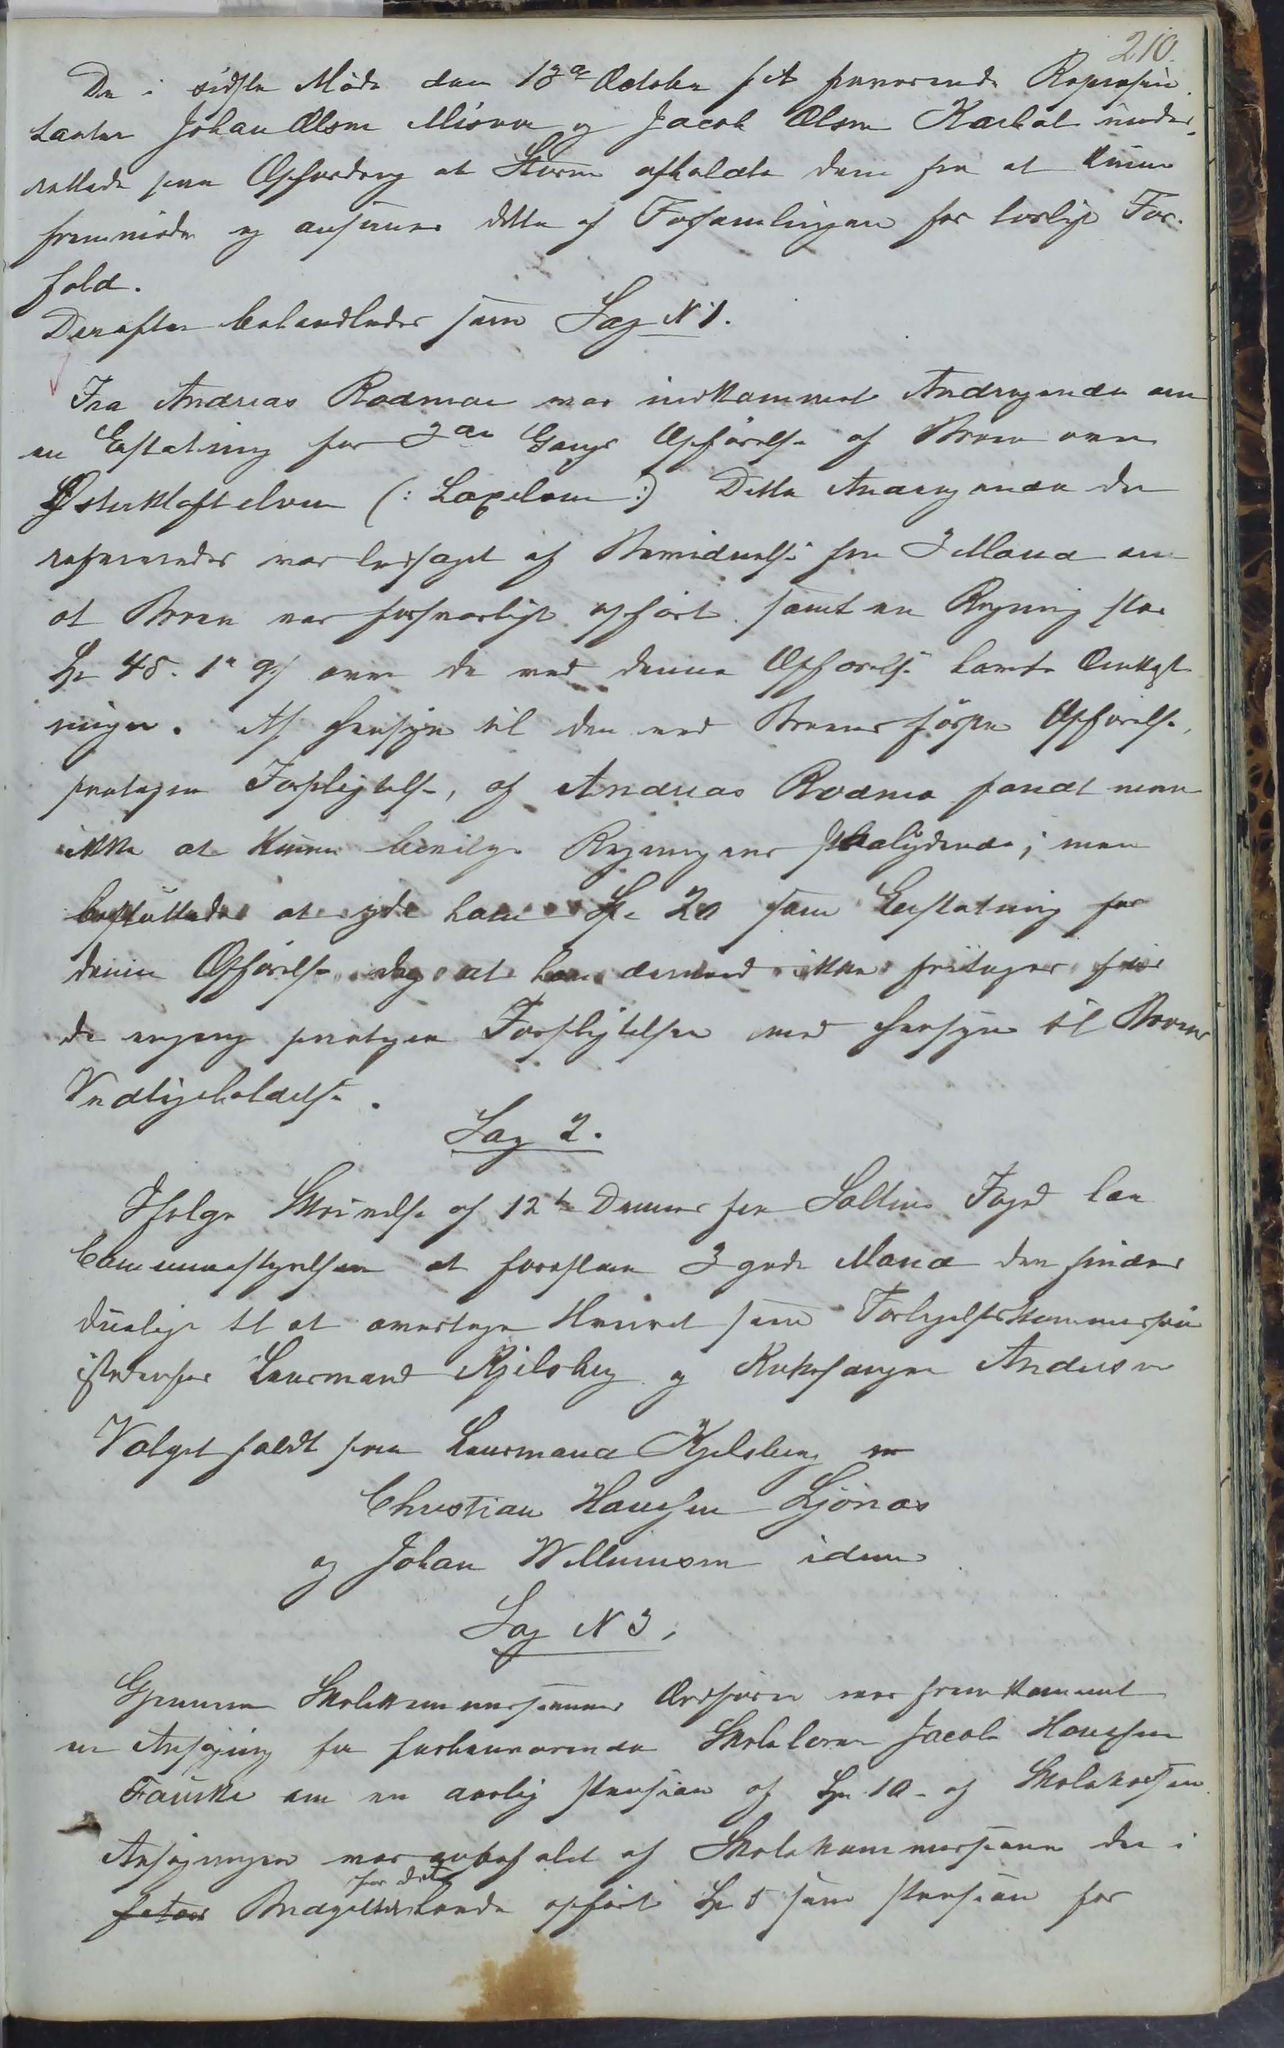 210.
De i sidste Møde den 18de October sidst fraværende Repræsen-
tanter Johan Olsen Misvær og Jacob Olsen Karbøl under-
rettede paa Opfordring at Storm afholdte dem fra at kunne
fremmøde og ansaaes dette af Forsamlingen for lovligt For-
fald.
Derefter behandledes som Sag N 1.
Fra Andreas Rodmoe var indkommet Andragende om
en Erstatning for 2den Gangs Opførelse af Broen over
Østerkloftelven (: Laxelven :) Dette Andragende der
refereredes var ledsaget af Bevidnelse fra 3 Mænd om
at Broen var forsvarligt opført samt en Regning stor
Sp 45. 1 " 9 s over de ved denne Opførelse havte Omkost-
ninger. Af Hensyn til den ved Broens første Opførelse,
paatagen Forpligtelse, af Andreas Rodmo fandt man
ikke at kunne bevilge Regningens Paalydende; men
besluttede at yde ham Sp. 20 som Erstatning for
denne Opførelse dog at han dermed ikke fritages for
de engang paatagen Forpligtelser med Hensyn til Broens
Vedligeholdelse.
Sag 2.
Ifølge Skrivelse af 12te Dennes fra Saltens Foged har
Communestyrelsen at foreslaae 3 gode Mænd der findes
duelige til at overtage Hvervet som Forligelseskommissair
istedenfor Lensmand Kjelsberg og Kirkesanger Andersen
Valget faldt paa Lensmand Kjelsberg
Christian Hansen Ljønæs
og Johan Willumsen idem
Sag N 3.
Gjennem Skolekommissionens Ordfører var fremkommet
en Ansøgning fra forhenværende Skolelærer Jacob Hansen
Fauske om en aarlig Pension af Sp. 10 af Skolekassen
Ansøgningen var anbefalet af Skolekommissionen der i
for det
Budgettet havde opført Sp 5 som Pension for